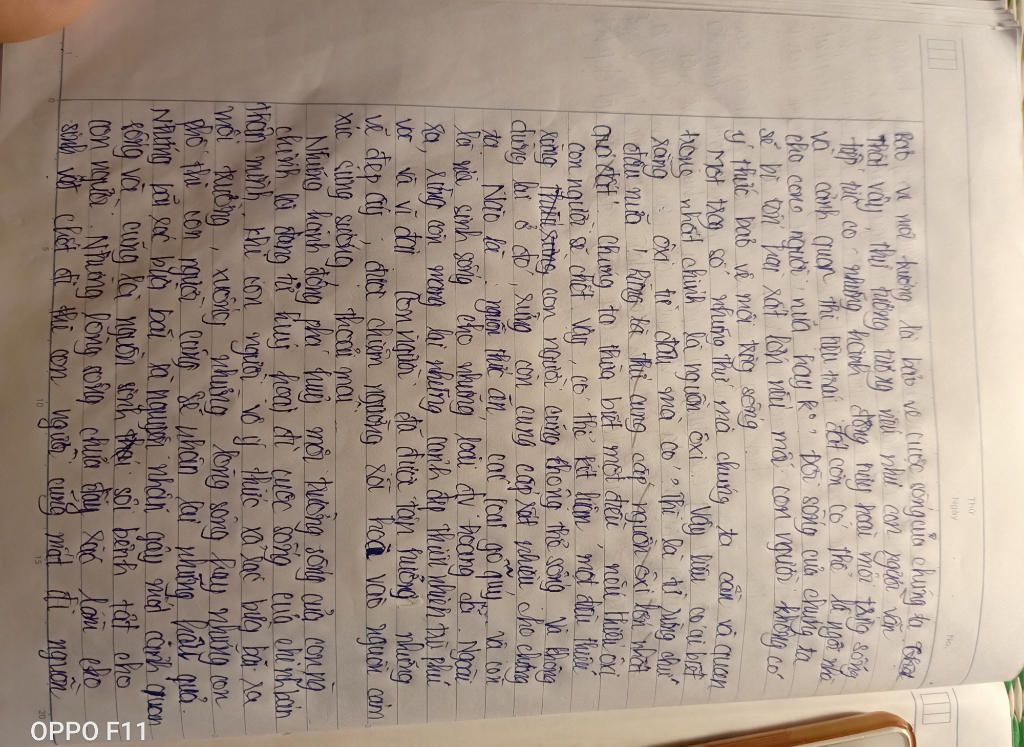 Thứ
Ngày
No.
Bảo vệ môi trường là bảo vệ cuộc sống của chúng ta
Thật vậy, thử tưởng tượng nếu như con người vẫn
tiếp tục có những hành động hủy hoại môi trường sống
và cảnh quan thì liệu trái đất còn có thể là ngôi nhà
cho con người nữa hay ko. Đời sống của chúng ta
sẽ bị tàn phá rất lớn nếu mỗi con người không có
ý thức bảo vệ môi trường sống
Một trong số những thứ mà chúng ta cần và quan
trọng nhất chính là nguồn ôxi. Vậy liệu có ai biết
rằng ôxi từ đâu mà có, thì là từ rừng chứ
đâu nữa, rừng xả thứ cung cấp nguồn ôxi lớn nhất
chúng ta thừa biết một điều, nếu thiếu ôxi
con người sẽ chết. Vậy, có thể kết luận một điều thiếu
rừng con người cũng không thể sống và không
dừng lại ở đó, rừng còn cung cấp rất nhiều cho chúng
ta. Nào là nguồn thức ăn, các loại gỗ quý, và còn
là nơi sinh sống cho những loài đv hoang dã. Ngoài
ra, rừng còn mang lại những cảnh đẹp thiên nhiên trù phú
và vĩ đại. Con người đã được tận hưởng những
vẻ đẹp ấy, được chiêm ngưỡng và hòa vào nguồn cảm
xúc sung sướng, thoải mái
Những hành động phá hủy môi trường sống của con ng
chính là đang tự hủy hoại đi cuộc sống của chính bản
thân mình, khi con người vô ý thức xả rác bừa bãi ra
môi trường, xuống những dòng sông hay những con
phố thì con người cũng sẽ nhận lại những hậu quả.
Những bãi rác bừa bãi là nguyên nhân gây mất cảnh quan
sống và cũng là nguồn sinh sôi bệnh tật cho
con người. Những dòng sông chứa đầy rác làm cho
sinh vật chết đi thì con người cũng mất đi nguồn
0
5
10
15
20
OPPO F11